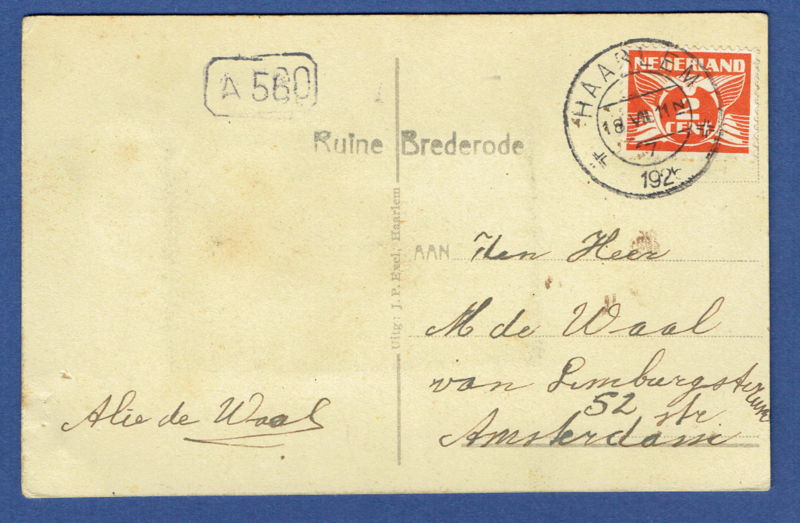 A 560
Ruine Brederode
NEDERLAND
CENT
HAARLEM
18 VII 11
192
Uitg: J. P. Exel, Haarlem
AAN den Heer
M de Waal
van Limburgstr
52 str
Amsterdam
Alie de Waal